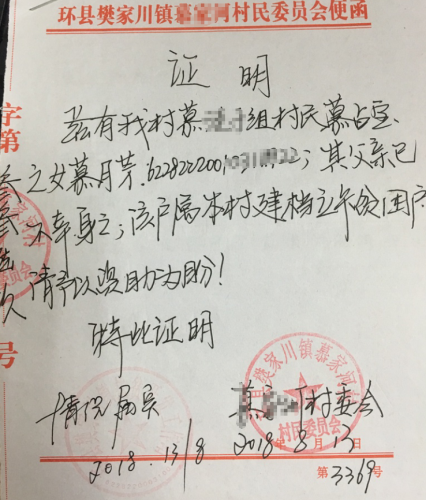 环县樊家川镇慕家河村民委员会便函
证 明
兹有我村慕 组村民慕占宝
之女慕月芽.622822200 ；其父亲已
不幸身亡；该户属本村建档立卡贫困户
请予以资助为盼！
特此证明
情况属实 村委会
2018.13/8 2018年8月13日
第3369号
字第
号
樊家川镇慕家河
村民委员会